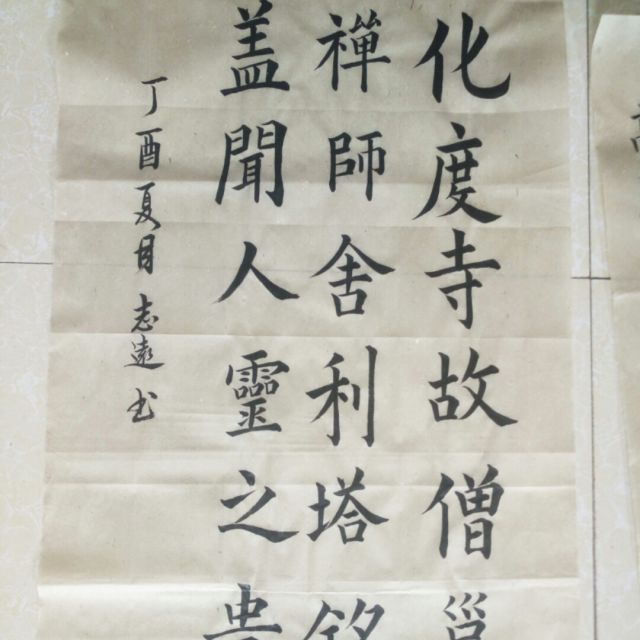 化度寺故僧邕
禪師舍利塔銘
盖聞人靈之貴
丁酉夏月志遠书